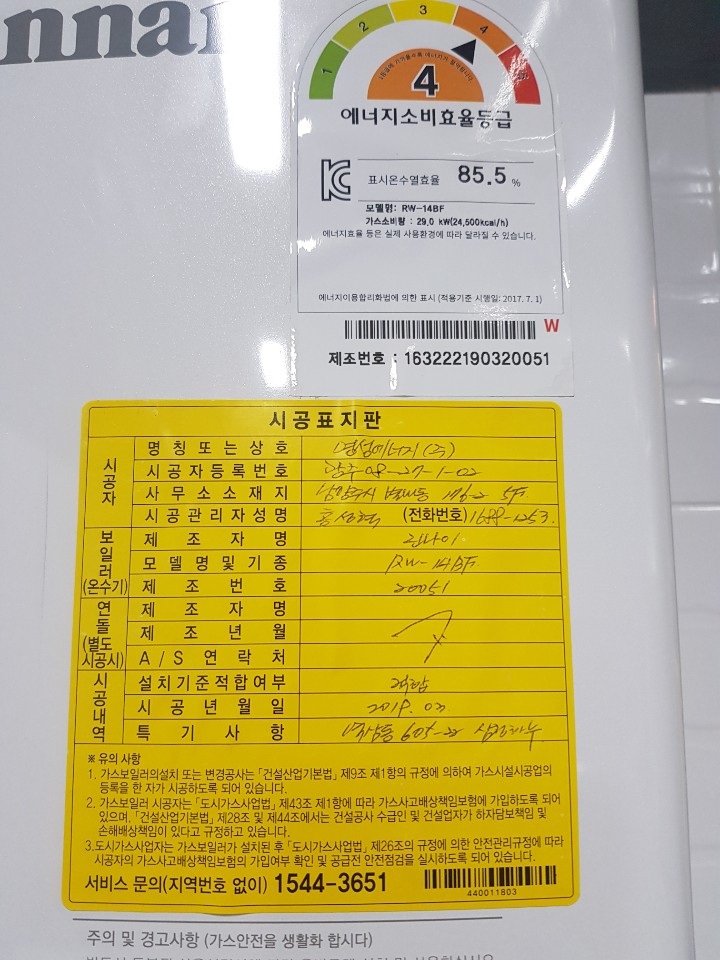 nnai
1 2 3 4 5
1등급에 가까울수록 에너지가 절약됩니다
4
에너지소비효율등급
KC 표시온수열효율 85.5 %
모델명: RW-14BF
가스소비량 : 29.0 kW(24,500kcal/h)
에너지효율 등은 실제 사용환경에 따라 달라질 수 있습니다.
에너지이용합리화법에 의한 표시 (적용기준 시행일: 2017. 7. 1)
W
제조번호 : 163222190320051
시공표지판
시공자
명칭 또는 상호
시공자등록번호 08-27-1-02
사무소소재지 남양주시 176-2 5F.
시공관리자성명 홍성혁 (전화번호) 1688-1253.
보일러(온수기)
제조자명 린나이.
모델명및기종 RW-14BF
제조번호 20051
연돌(별도시공시)
제조자명
제조년월
A/S 연락처
시공내역
설치기준적합여부 적합
시공년월일 2019. 03.
특기사항 605-22
※ 유의 사항
1. 가스보일러의설치 또는 변경공사는 「건설산업기본법」 제9조 제1항의 규정에 의하여 가스시설시공업의
등록을 한 자가 시공하도록 되어 있습니다.
2. 가스보일러 시공자는 「도시가스사업법」 제43조 제1항에 따라 가스사고배상책임보험에 가입하도록 되어
있으며, 「건설산업기본법」 제28조 및 제44조에서는 건설공사 수급인 및 건설업자가 하자담보책임 및
손해배상책임이 있다고 규정하고 있습니다.
3.도시가스사업자는 가스보일러가 설치된 후 「도시가스사업법」 제26조의 규정에 의한 안전관리규정에 따라
시공자의 가스사고배상책임보험의 가입여부 확인 및 공급전 안전점검을 실시하도록 되어 있습니다.
서비스 문의(지역번호 없이) 1544-3651
440011803
주의 및 경고사항 (가스안전을 생활화 합시다)